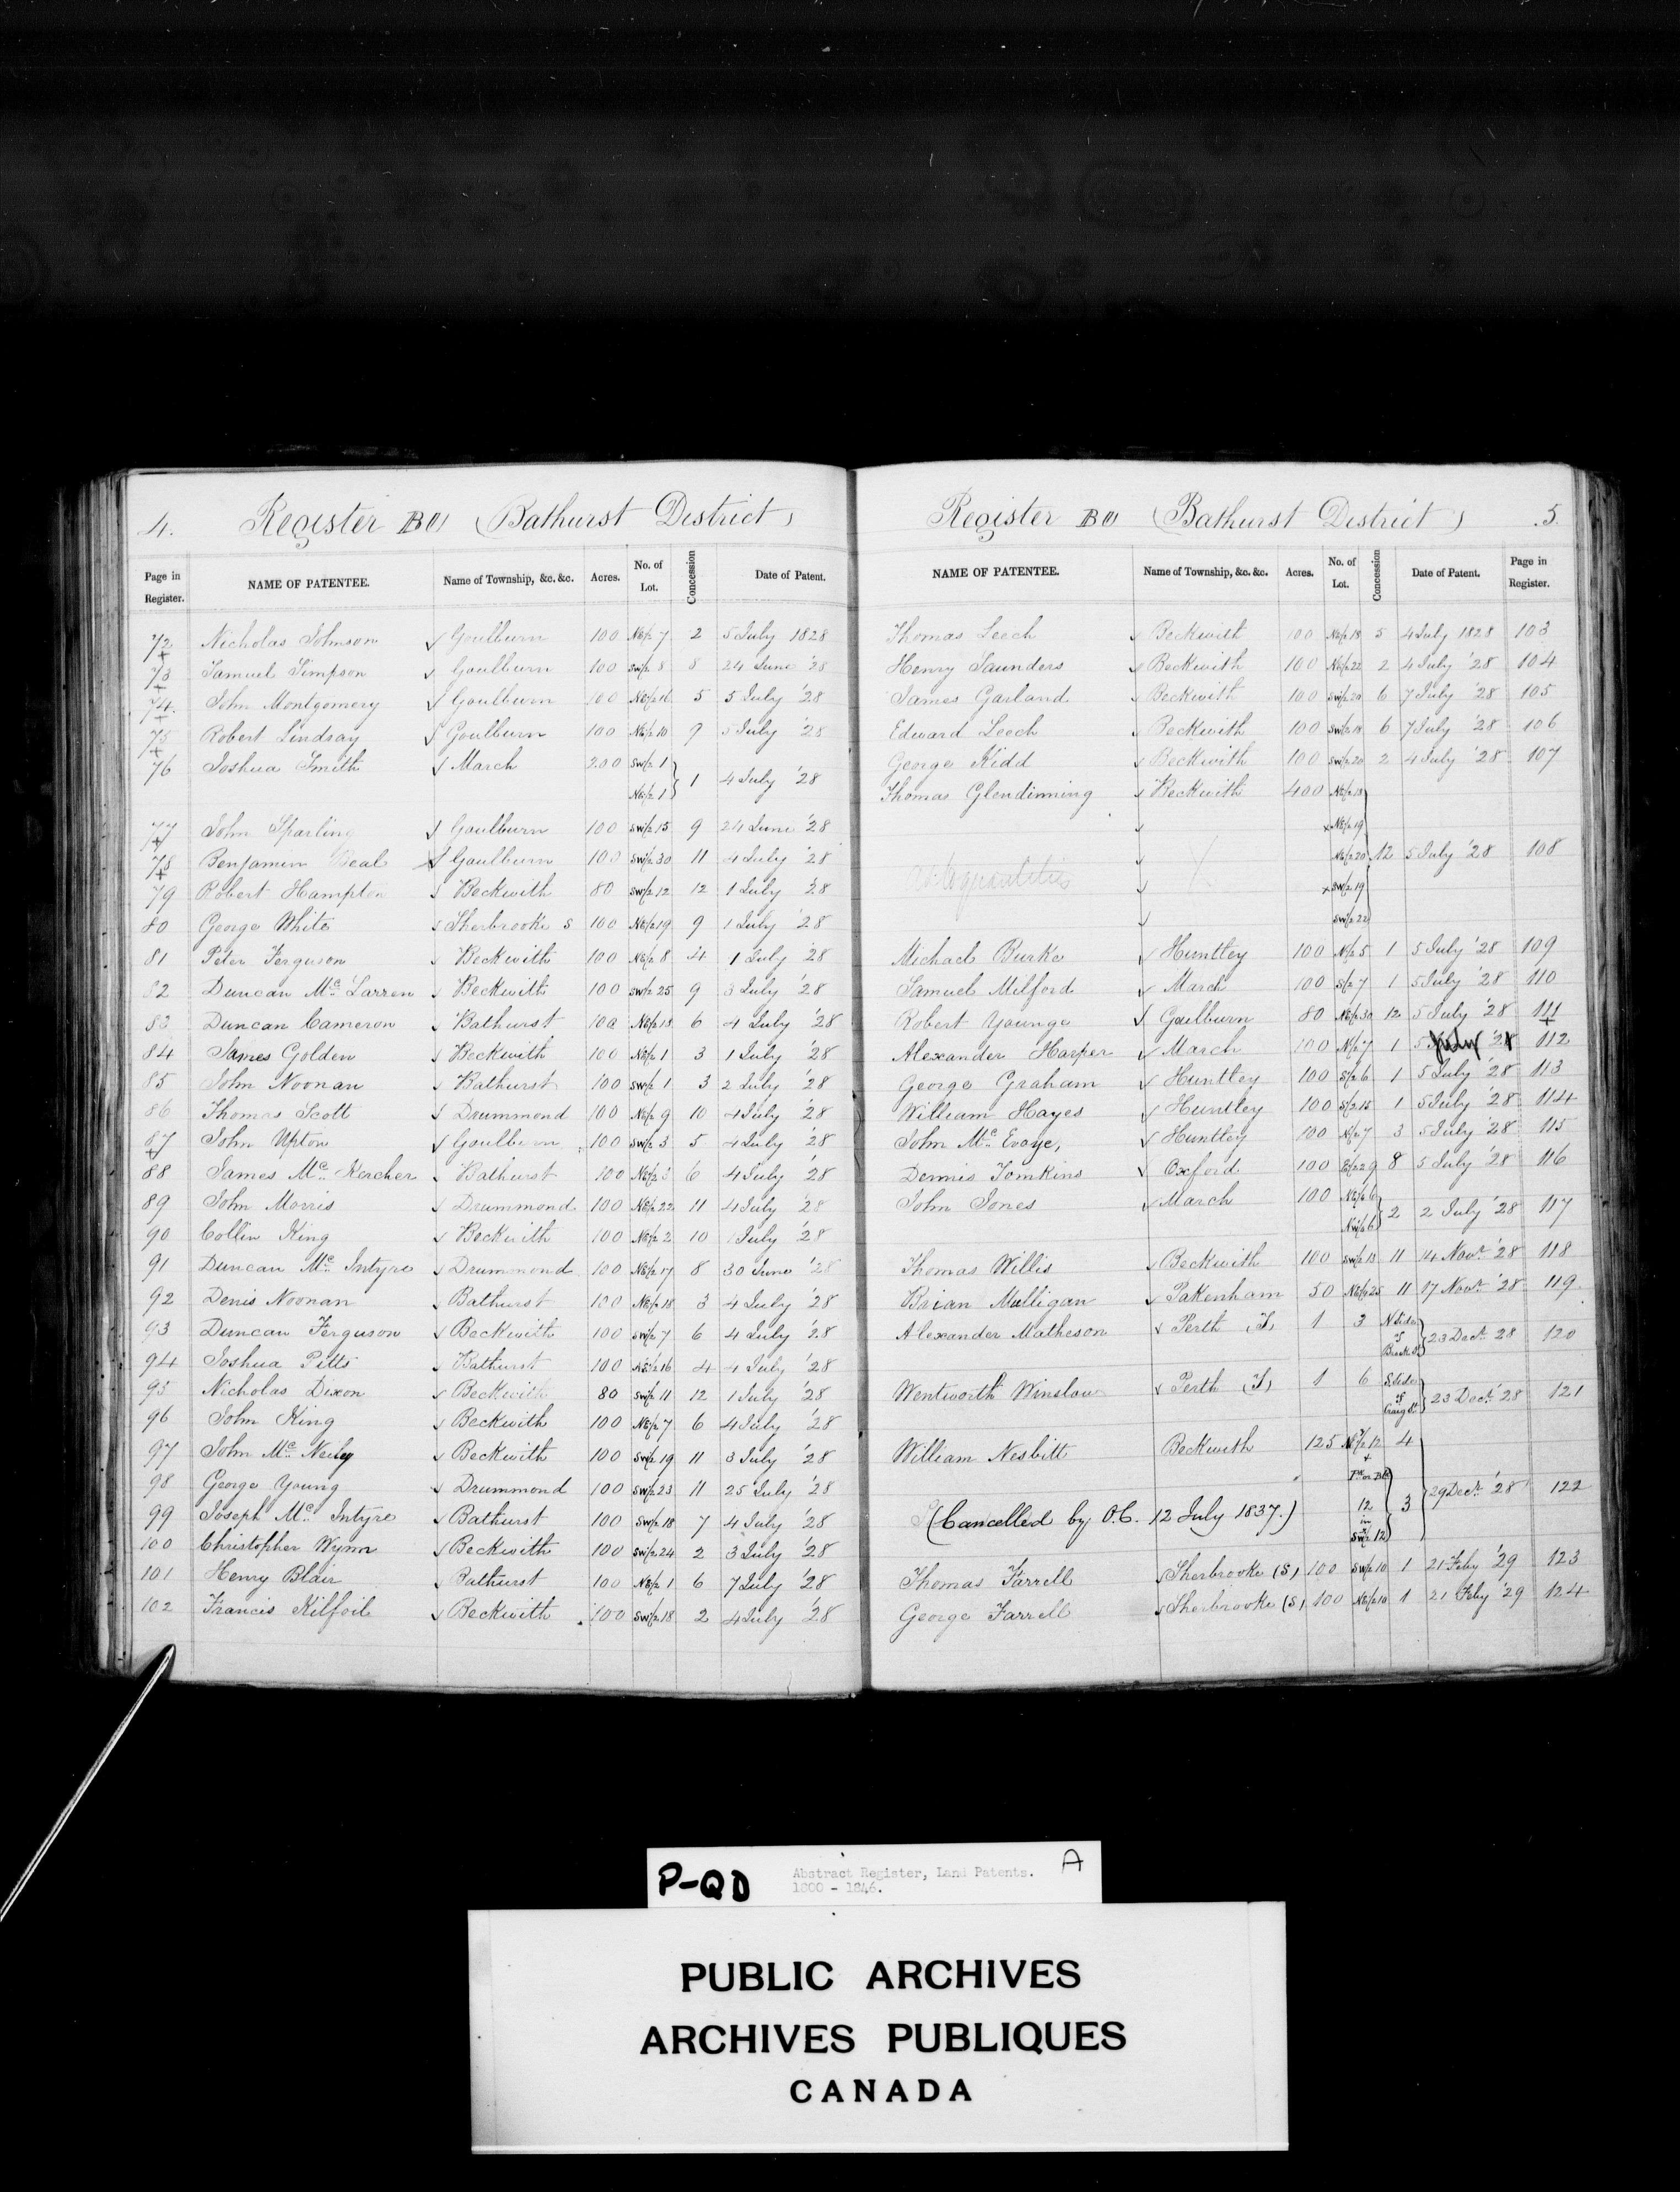 4. Register BO (Bathurst District)
Page in Register. NAME OF PATENTEE. Name of Township, &c. &c. Acres. No. of Lot. Concession Date of Patent.
72 Nicholas Johnson Goulburn 100 NE/2 7 2 5 July 1828
73 Samuel Simpson Goulburn 100 SW/2 8 8 24 June '28
74. John Montgomery Goulburn 100 NE/2 16 5 5 July '28
75 Robert Lindsay Goulburn 100 NE/2 10 9 5 July '28
76 Joshua Smith March 200 SW/2 1
NE/2 1 1 4 July '28
77 John Sparling Goulburn 100 SW/2 15 9 24 June '28
78 Benjamin Beal Goulburn 100 SW/2 30 11 4 July '28
79 Robert Hampton Beckwith 80 SW/2 12 12 1 July '28
80 George White Sherbrooke S 100 NE/2 19 9 1 July '28
81 Peter Ferguson Beckwith 100 NE/2 8 4 1 July '28
82 Duncan Mc Larren Beckwith 100 SW/2 25 9 3 July '28
83 Duncan Cameron Bathurst 100 NE/2 18 6 4 July '28
84 James Golden Beckwith 100 NE/2 1 3 1 July '28
85 John Noonan Bathurst 100 SW/2 1 3 2 July '28
86 Thomas Scott Drummond 100 NE/2 9 10 4 July '28
87 John Upton Goulburn 100 SW/2 3 5 4 July '28
88 James Mc Kercher Bathurst 100 NE/2 3 6 4 July '28
89 John Morris Drummond 100 NE/2 22 11 4 July '28
90 Collin King Beckwith 100 NE/2 2 10 1 July '28
91 Duncan Mc Intyre Drummond 100 NE/2 17 8 30 June '28
92 Denis Noonan Bathurst 100 NE/2 18 3 4 July '28
93 Duncan Ferguson Beckwith 100 SW/2 7 6 4 July '28
94 Joshua Pitts Bathurst 100 NE/2 16 4 4 July '28
95 Nicholas Dixon Beckwith 80 SW/2 11 12 1 July '28
96 John King Beckwith 100 NE/2 7 6 4 July '28
97 John Mc Neily Beckwith 100 SW/2 19 11 3 July '28
98 George Young Drummond 100 SW/2 23 11 25 July '28
99 Joseph Mc Intyre Bathurst 100 SW/2 18 7 4 July '28
100 Christopher Wynn Beckwith 100 SW/2 24 2 3 July '28
101 Henry Blair Bathurst 100 NE/2 1 6 7 July '28
102 Francis Kilfoil Beckwith 100 SW/2 18 2 4 July '28
Register BO (Bathurst District) 5.
NAME OF PATENTEE. Name of Township, &c. &c. Acres. No. of Lot. Concession Date of Patent. Page in Register.
Thomas Leech Beckwith 100 NE/2 18 5 4 July 1828 103
Henry Saunders Beckwith 100 NE/2 22 2 4 July '28 104
James Garland Beckwith 100 SW/2 20 6 7 July '28 105
Edward Leech Beckwith 100 SW/2 18 6 7 July '28 106
George Kidd Beckwith 100 SW/2 20 2 4 July '28 107
Thomas Glendinning Beckwith 400 NE/2 18
x NE/2 19
NE/2 20 12 5 July '28 108
as to quantities x SW/2 19
SW/2 22
Michael Burke Huntley 100 N/2 5 1 5 July '28 109
Samuel Milford March 100 S/2 7 1 5 July '28 110
Robert Younge Goulburn 80 NE/2 30 12 5 July '28 111
Alexander Harper March 100 N/2 7 1 5 July '28 112
George Graham Huntley 100 S/2 6 1 5 July '28 113
William Hayes Huntley 100 S/2 15 1 5 July '28 114
John Mc Evoye, Huntley 100 N/2 7 3 5 July '28 115
Dennis Tomkins Oxford 100 E/2 29 8 5 July '28 116
John Jones March 100 NE/2 6
NW/2 6 2 2 July '28 117
Thomas Willis Beckwith 100 SW/2 13 11 14 Novr '28 118
Brian Mulligan Pakenham 50 NE/2 25 11 17 Novr '28 119.
Alexander Matheson Perth (T) 1 3 N Side of Brock St. 23 Decr 28 120
Wentworth Winslow Perth (T) 1 6 S. Side of Craig St. 23 Decr '28 121
William Nesbitt Beckwith 125 NE/2 12 4
+
12 3 29 Decr '28 122
(Cancelled by O.C. 12 July 1837.) in SW/2 12
Thomas Farrell Sherbrooke (S) 100 SW/2 10 1 21 Feby '29 123
George Farrell Sherbrooke (S) 100 NE/2 10 1 21 Feby '29 124
P-QD Abstract Register, Land Patents. A
1800 - 1846.
PUBLIC ARCHIVES
ARCHIVES PUBLIQUES
CANADA